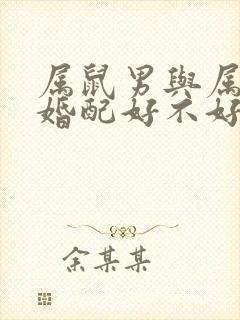 属鼠男與属
婚配好不好
余某某